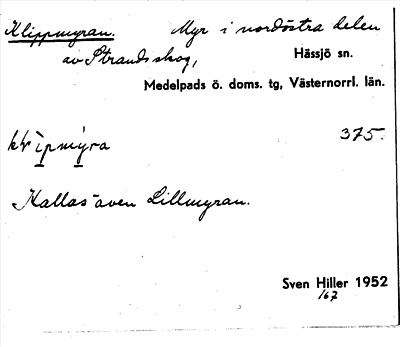 Klippmyran. Myr i nordöstra delen
av Strands skog, Hässjö sn.
Medelpads ö. doms. tg, Västernorrl. län.
375.
Kallas även Lillmyran.
Sven Hiller 1952
167